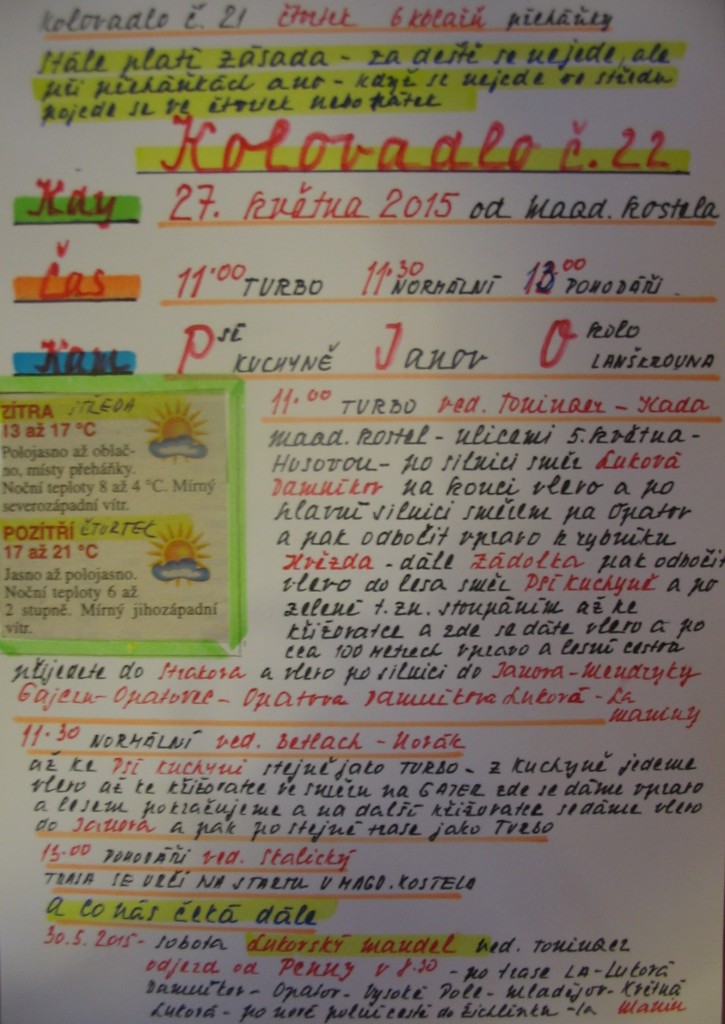 Kolovadlo č. 21 čtvrtek 6 kolařů přeháňky
Stále platí zásada - za deště se nejede, ale
při přeháňkách ano - když se nejede ve středu
pojede se ve čtvrtek nebo pátek
Kolovadlo č. 22
Kdy 27. května 2015 od Magd. kostela
Čas 11.00 TURBO 11.30 NORMÁLNÍ 13.00 POHODÁŘI
Kam PSÍ KUCHYNĚ Janov Okolo LANŠKROUNA
ZÍTRA STŘEDA
13 až 17 °C
Polojasno až oblač-
no, místy přeháňky.
Noční teploty 8 až 4 °C. Mírný
severozápadní vítr.
POZÍTŘÍ ČTVRTEK
17 až 21 °C
Jasno až polojasno.
Noční teploty 6 až
2 stupně. Mírný jihozápadní
vítr.
11.00 TURBO ved. - Kada
Magd. kostel - ulicemi 5. května -
Husovou - po silnici směr Luková
Damníkov na konci vlevo a po
hlavní silnici směrem na Opatov
a pak odbočit vpravo k rybníku
Hvězda - dále Zádolka pak odbočit
vlevo do lesa směr Psí Kuchyně a po
zelené t. zn. stoupáním až ke
křižovatce a zde se dáte vlevo a po
cca 100 metrech vpravo a lesní cestou
přijedete do Strakova a vlevo po silnici do Janova - Mendryky
Gajer - Opatovec - Opatova Damníkova Luková - La
maniny
11.30 NORMÁLNÍ ved. Betlach - Horák
až ke Psí kuchyni stejně jako TURBO - z Kuchyně jedeme
vlevo až ke křižovatce ve směru na GAJER zde se dáme vpravo
a lesem pokračujeme a na další křižovatce se dáme vlevo
do Janova a pak po stejné trase jako TURBO
13.00 POHODÁŘI ved. Skalický
TRASA SE URČÍ NA STARTU U MAGD. KOSTELA
a co nás čeká dále
30.5. 2015 - sobota Lukovský mandel ved.
odjezd od Penny v 8.30 - po trase LA - Luková
Damníkov - Opatov - Vysoké Pole - Mladějov - Květná
Luková - po nové polní cestě do Žichlínku - La Manin